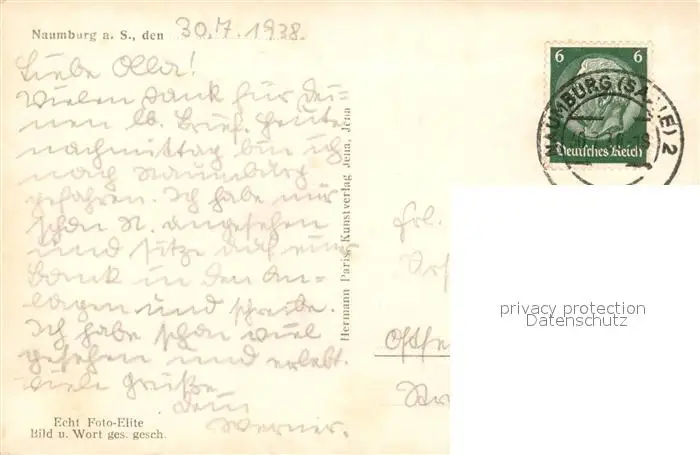 Naumburg a. S., den 30.7.1938.
Liebe Olla!
Vielen Dank für Dei-
nen lb. Brief. Heute
nachmittag bin ich
nach Naumburg
gefahren. Ich habe mir
schon N. angesehen
und sitze auf einer
Bank in den An-
lagen und schreibe.
Ich habe schon viel
gesehen und erlebt.
Viele Grüße
Dein
Werner.
Echt Foto-Elite
Bild u. Wort ges. gesch.
Hermann Paris, Kunstverlag Jena, Jena
6 6
Deutsches Reich
NAUMBURG (SAALE) 2
Frl.
privacy protection
Datenschutz